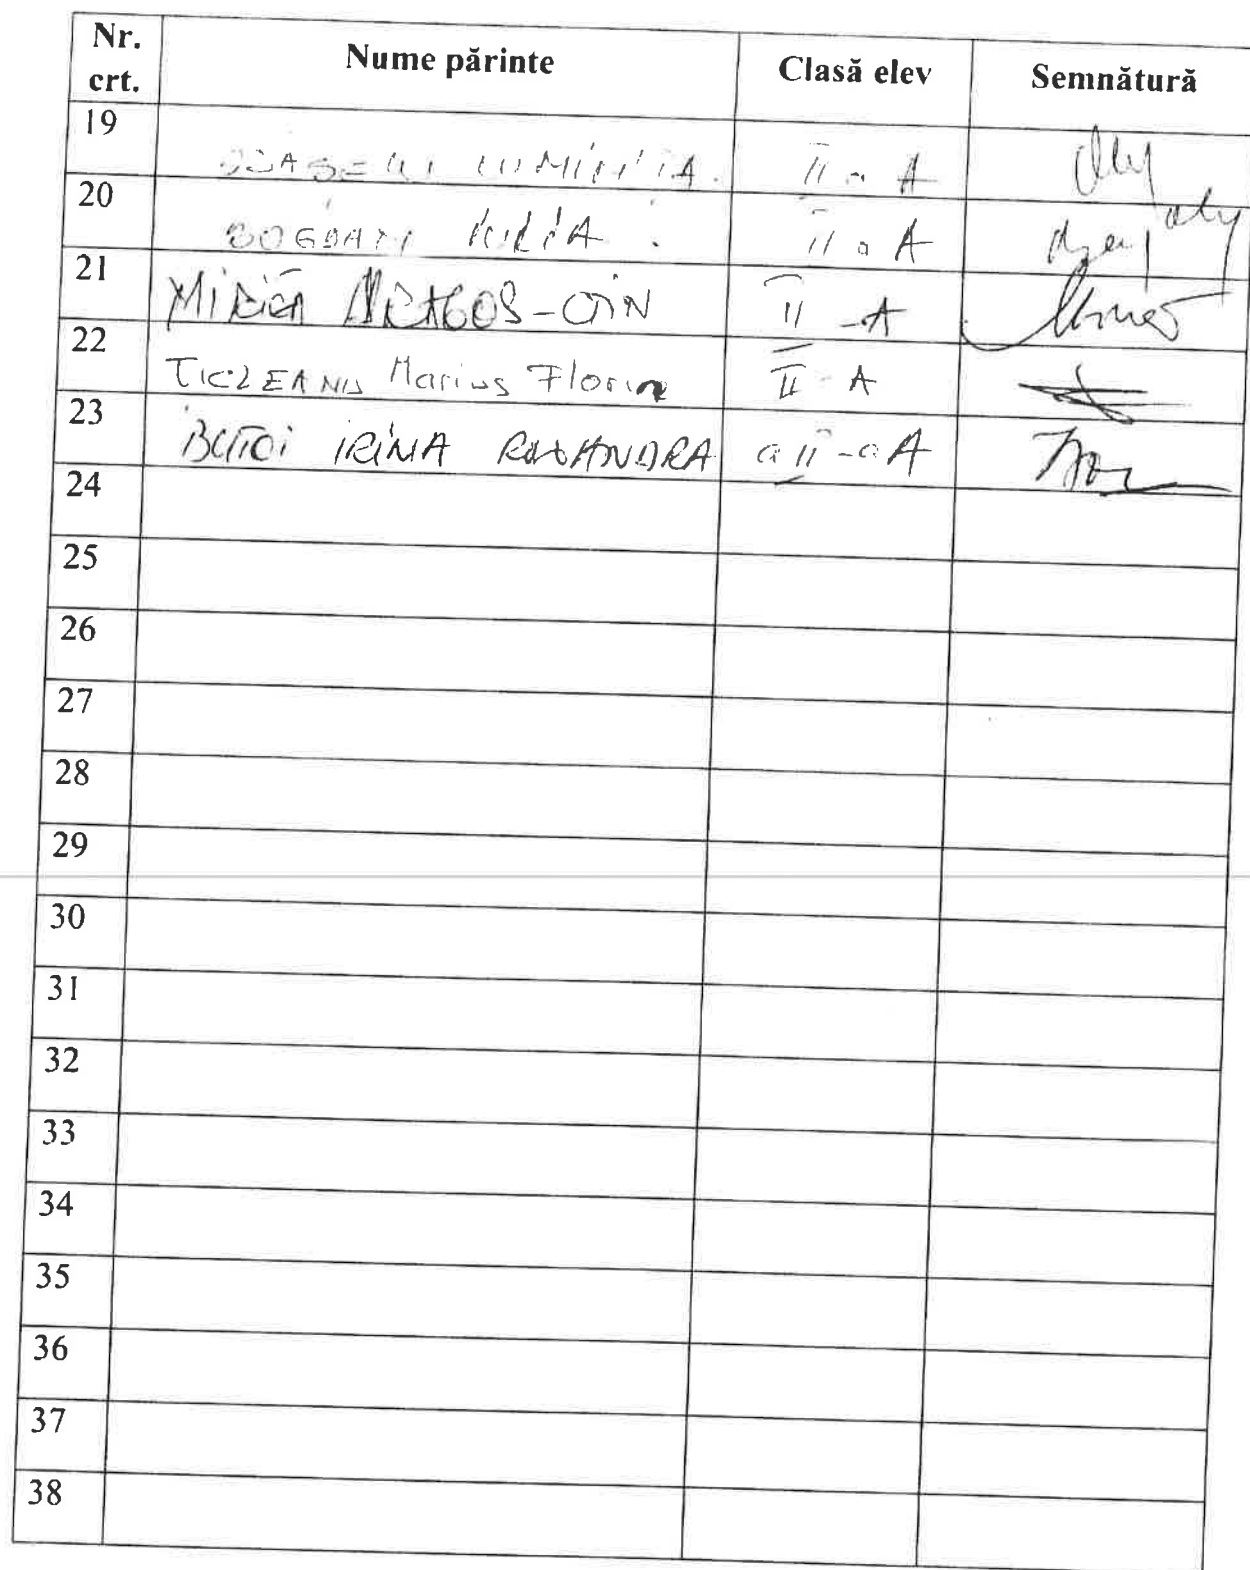 Nr. crt. Nume părinte Clasă elev Semnătură
19 II a A
20 BOGDAN IULIA II a A
21 MIRICĂ DRAGOS-CTIN II -A
22 TICLEANU Marius Florin II - A
23 BUTOI IRINA RUXANDRA a II-a A
24
25
26
27
28
29
30
31
32
33
34
35
36
37
38